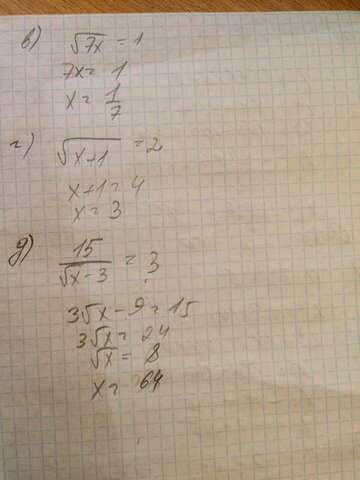 в) √7x = 1
7x = 1
x = 1/7
г) √x+1 = 2
x+1 = 4
x = 3
д) 15/√x-3 = 3
3√x - 9 = 15
3√x = 24
√x = 8
x = 64